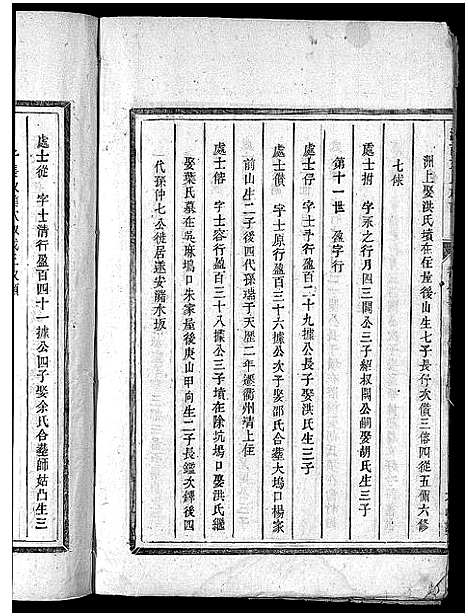 洲上娶洪氏墳在任屋後山生七子長仔次儥三傛四從五俌六修
七俟
處士哲 字永之行月四三闕公三子紹叔闕公嗣娶胡氏生三子
第十一世 盈字行
處士仔 字士予行盈百二十九據公長子娶洪氏生三子
處士儥 字士原行盈百三十六據公次子娶邵氏合墓大塢口楊家
前山生二子後四代孫瑞于天歷二年遷衢州清上住
處士傛 字士容行盈百三十八據公三子墳在除坑塢口娶洪氏繼
娶葉氏墓在吳麻塢口朱家屋後庚山甲向生二子長鑑次鐸後四
代孫仲七公徙居遂安籍木坂
處士從 字士清行盈百四十一據公四子娶余氏合葬師姑凸生三